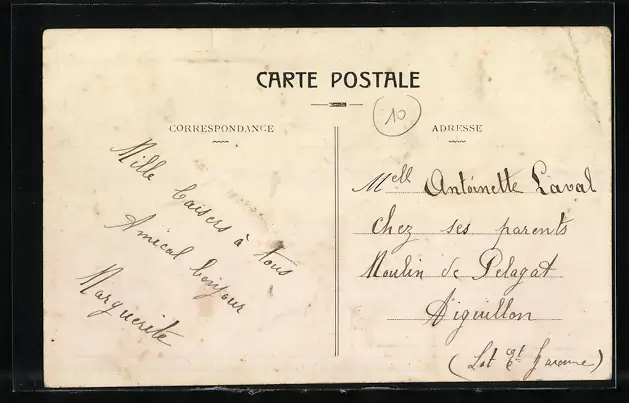 CARTE POSTALE
10
CORRESPONDANCE
ADRESSE
Mille
baisers à tous
Amical bonjour
Marguerite
Melle Antoinette Laval
Chez ses parents
Moulin de Pelagat
Aiguillon
(Lot et Garonne)